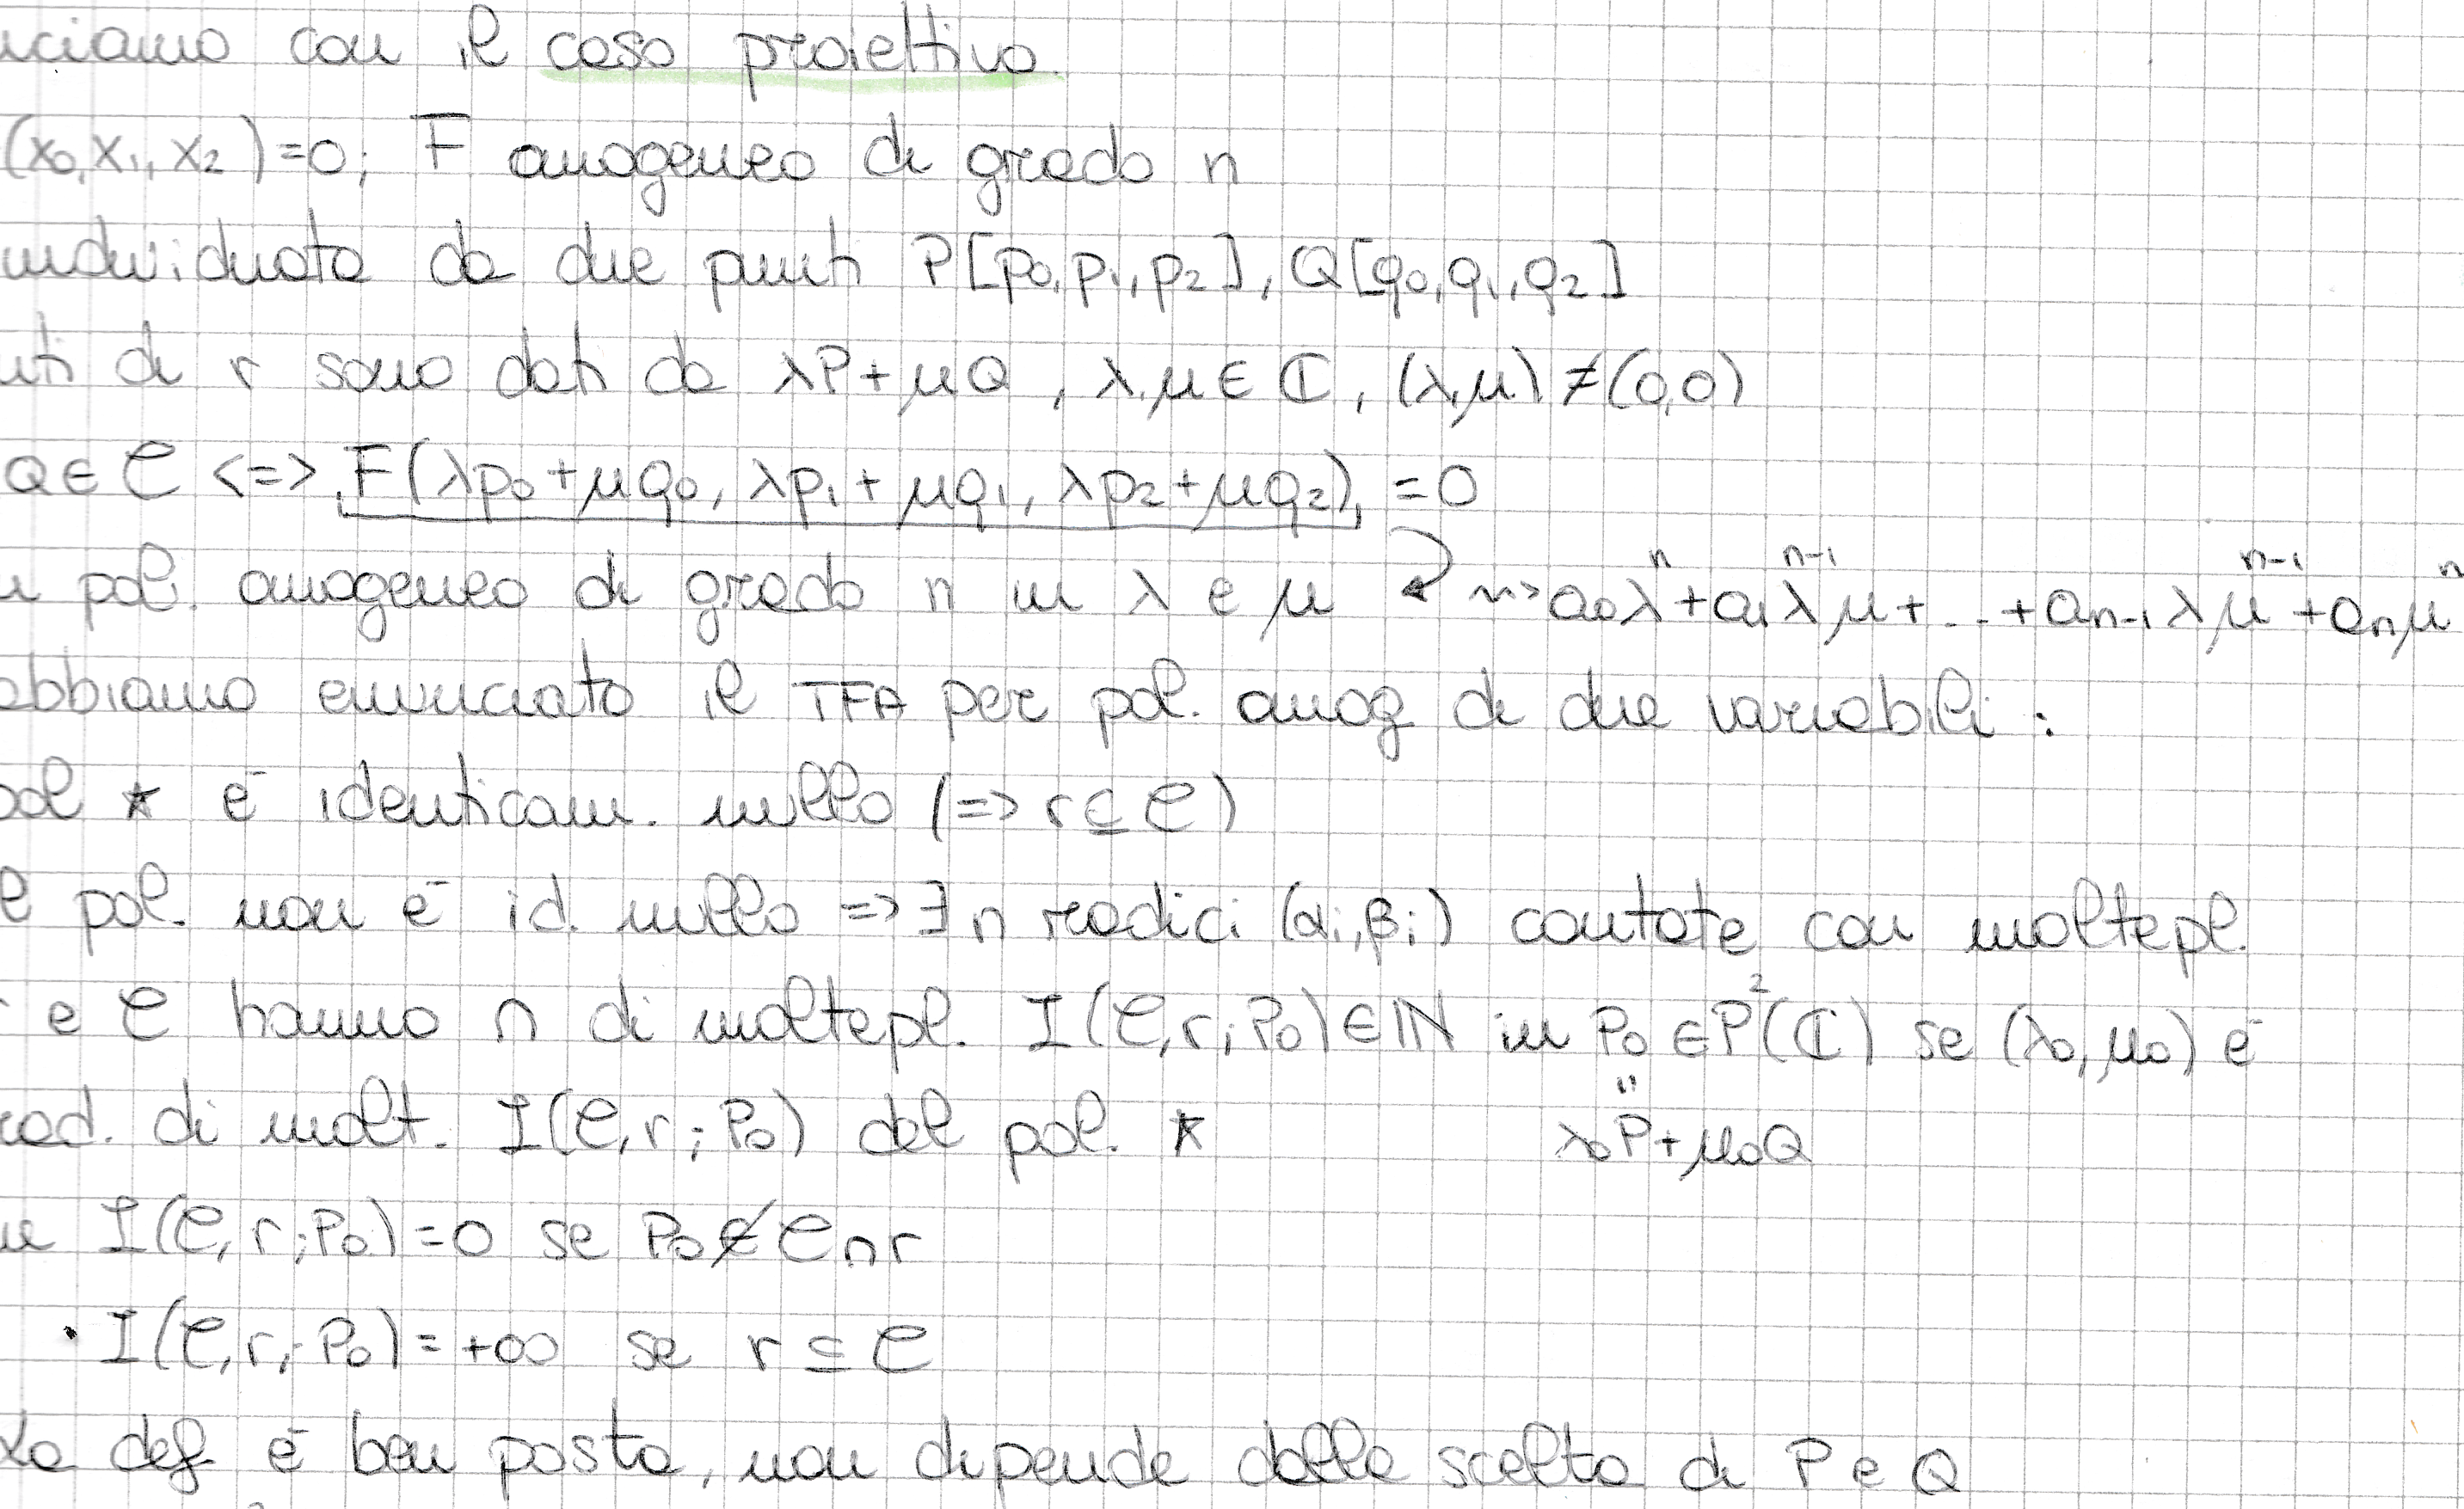 nciamo con il caso proiettivo.
(x₀, x₁, x₂)=0; F omogeneo di grado n
individuata da due punti P[p₀, p₁, p₂], Q[q₀, q₁, q₂]
nti di r sono dati da λP+μQ, λ,μ∈ℂ, (λ,μ)≠(0,0)
Q∈C <=> F(λp₀+μq₀, λp₁+μq₁, λp₂+μq₂) =0
n pol. omogeneo di grado n in λ e μ ↩ ~> a₀λⁿ+a₁λⁿ⁻¹μ+...+aₙ₋₁λμⁿ⁻¹+aₙμⁿ
abbiamo enunciato il TFA per pol. omog di due variabili:
pol ★ è identicam. nullo (=> r⊆C)
l pol. non è id. nullo => ∃ n radici (αᵢ,βᵢ) contate con moltepl.
r e C hanno ∩ di moltepl. I(C,r;P₀)∈ℕ in P₀∈P²(ℂ) se (λ₀,μ₀) è
rad. di molt. I(C,r;P₀) del pol. ★ " λ₀P+μ₀Q
ne I(C,r;P₀)=0 se P₀∉C∩r
• I(C,r;P₀)=+∞ se r⊆C
La def è ben posta, non dipende dalla scelta di P e Q